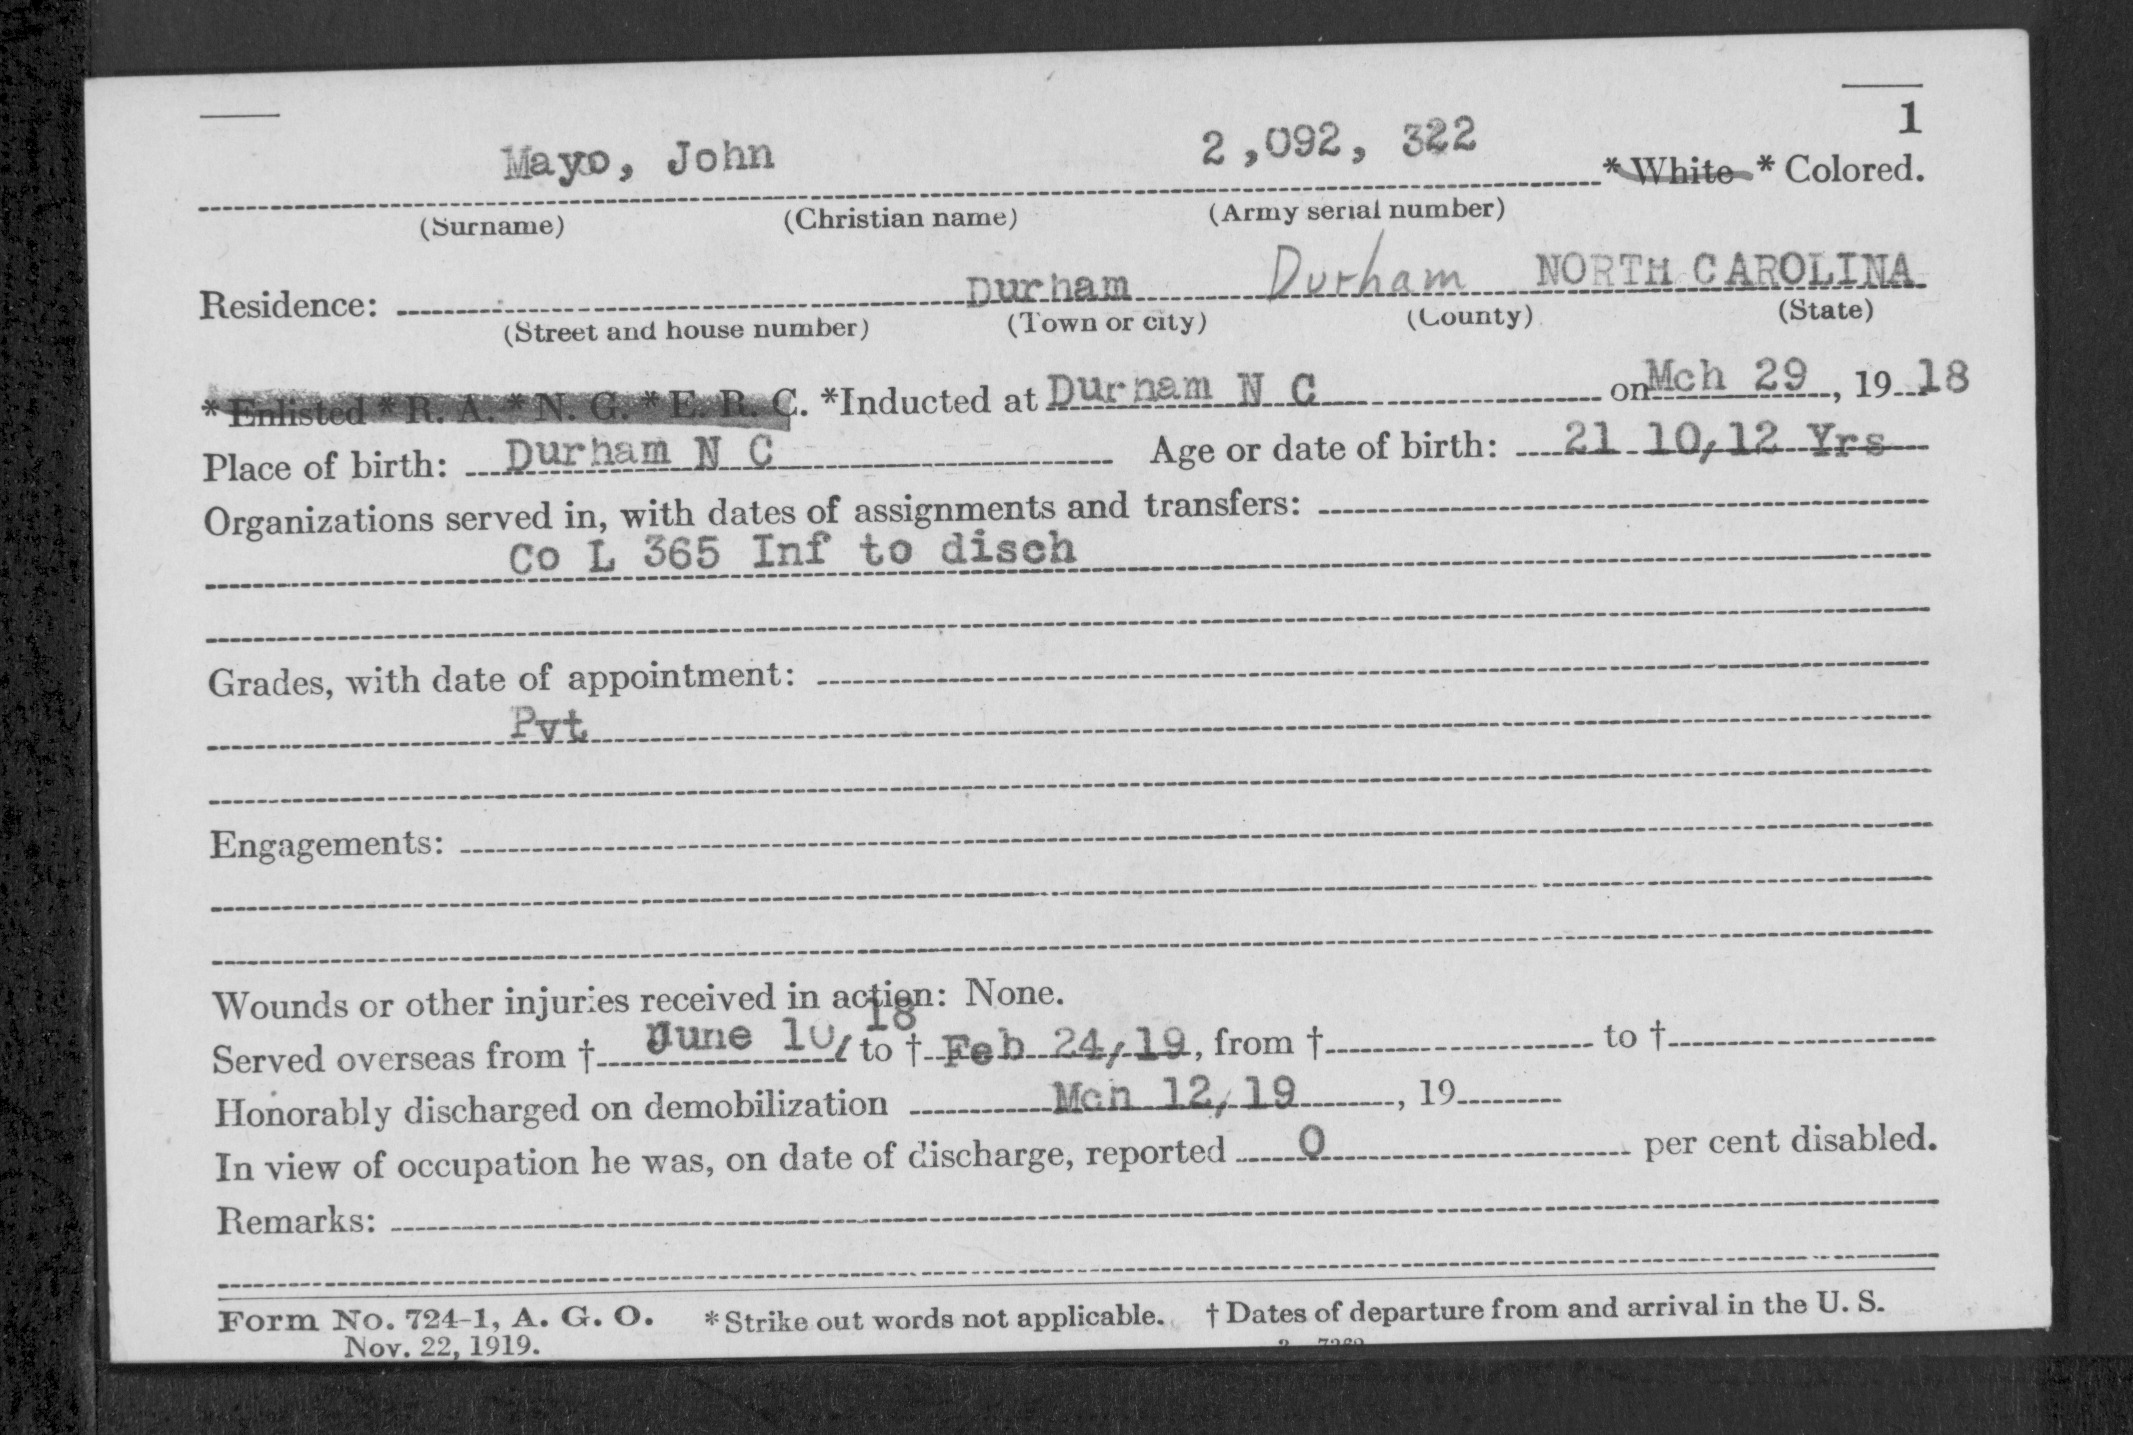 1
Mayo, John 2,092, 322 * White * Colored.
(Surname) (Christian name) (Army serial number)
Residence: Durham Durham NORTH CAROLINA
(Street and house number) (Town or city) (County) (State)
* Enlisted * R. A. * N. G. * E. R. C. *Inducted at Durham N C on Mch 29, 19 18
Place of birth: Durham N C Age or date of birth: 21 10/12 Yrs
Organizations served in, with dates of assignments and transfers:
Co L 365 Inf to disch
Grades, with date of appointment:
Pvt
Engagements:
Wounds or other injuries received in action: None.
Served overseas from † June 10/18 to † Feb 24/19, from † to †
Honorably discharged on demobilization Mch 12/19, 19
In view of occupation he was, on date of discharge, reported 0 per cent disabled.
Remarks:
Form No. 724-1, A. G. O. * Strike out words not applicable. † Dates of departure from and arrival in the U. S.
Nov. 22, 1919.